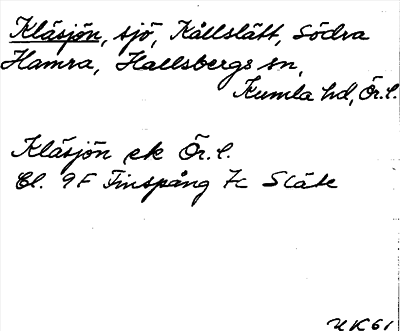 Kläsjön, sjö, Kållslätt, Södra
Hamra, Hallsbergs sn,
Kumla hd, Ör.l.
Kläsjön ek Ör.l.
Bl. 9F Finspång 7c
UK61